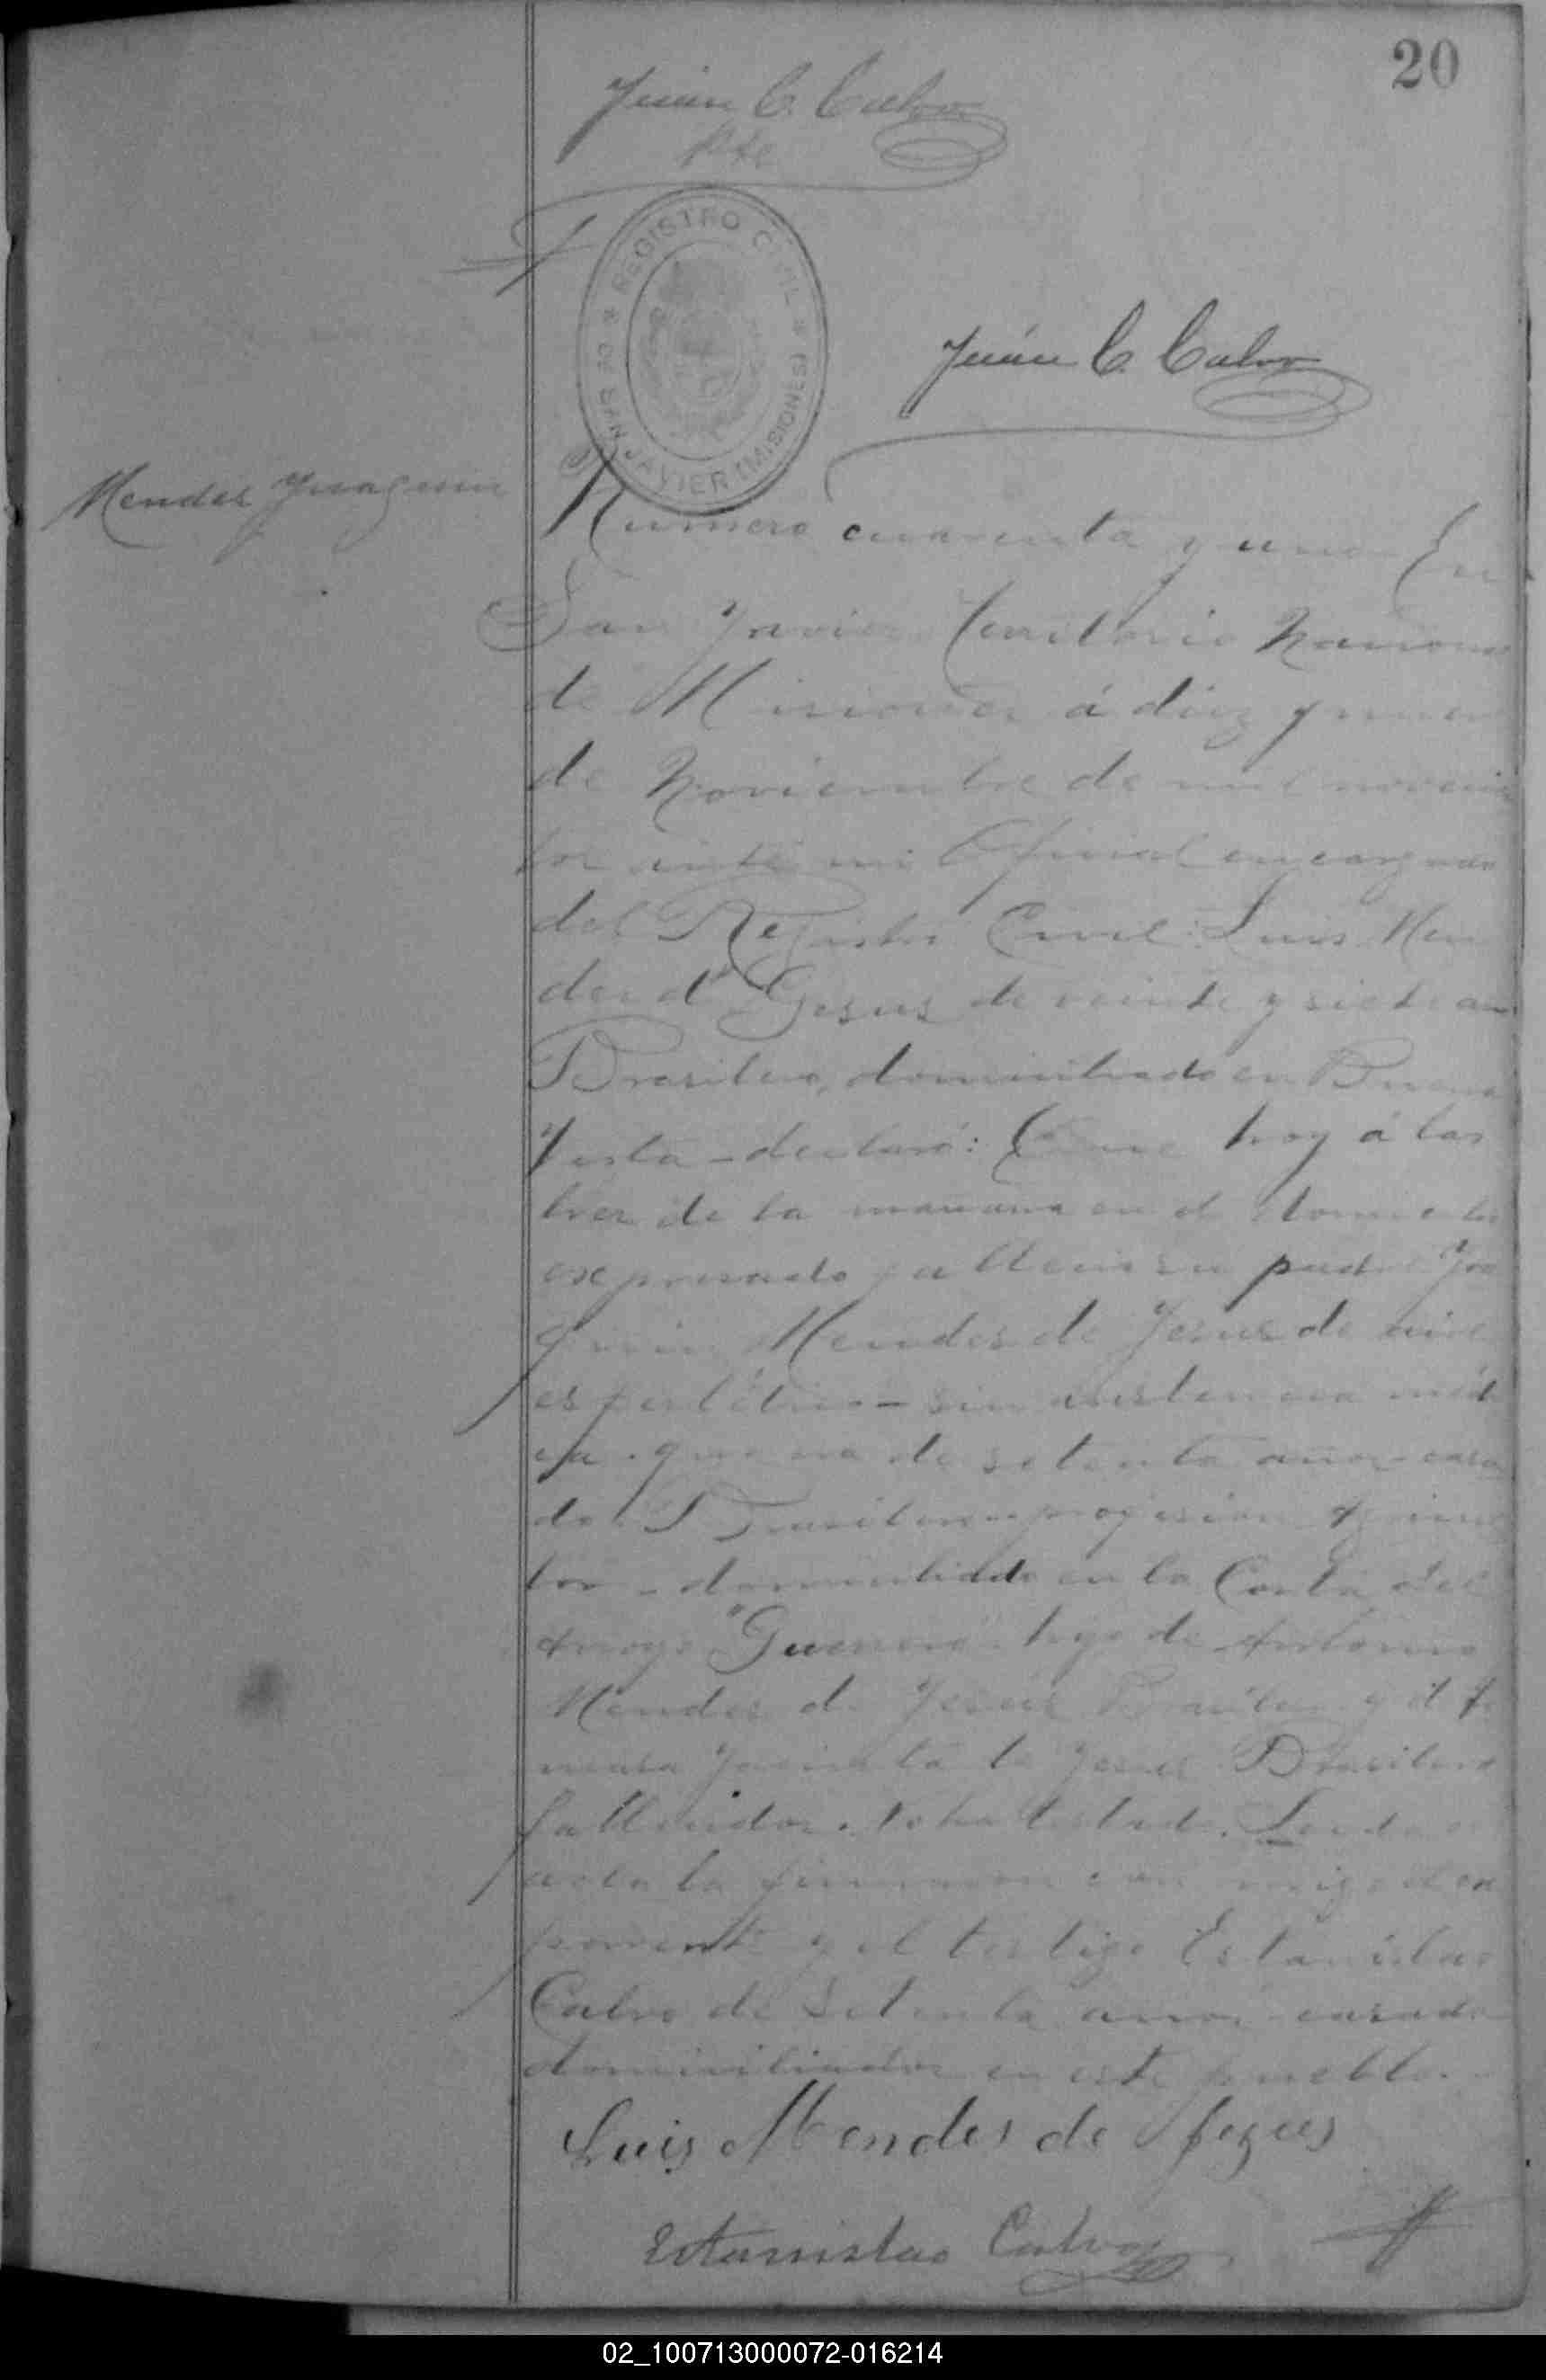 20
Juán C. Calvo
Pte
REGISTRO CIVIL
DE SAN JAVIER (MISIONES)
Juán C. Calvo
Mendes Juaquin
Numero cuarenta y uno En
San Javier Territorio Naciona
de Misiones á diez y nueve
de Noviembre de mil novecien
tos ante mi Oficial encargado
del Registro Civil: Luis Men
des d' Gesus de veinte y siete años
Brasilero, domiciliado en Buena
Vista - declaró: Que hoy á las
tres de la mañana en el domicilio
expresado falleció su padre Joa
quin Mendes de Jesus de
sin asistencia médi
ca. que era de setenta años casa
do Brasilero profesion Agricul
tor - domiciliado en la Costa del
Arroyo "Guerrero" hijo de Antonio
Mendes de Jesus Brasilero y de
Jacinta de Jesus Brasilera
fallecidos. No ha testado. Leida el
acta la firmaron con migo el ex
ponente y el testigo Estanislao
Calvo de setenta años casado
domiciliados en este pueblo.
Luis Mendes de Jezus
Estanislao Calvo
02_100713000072-016214